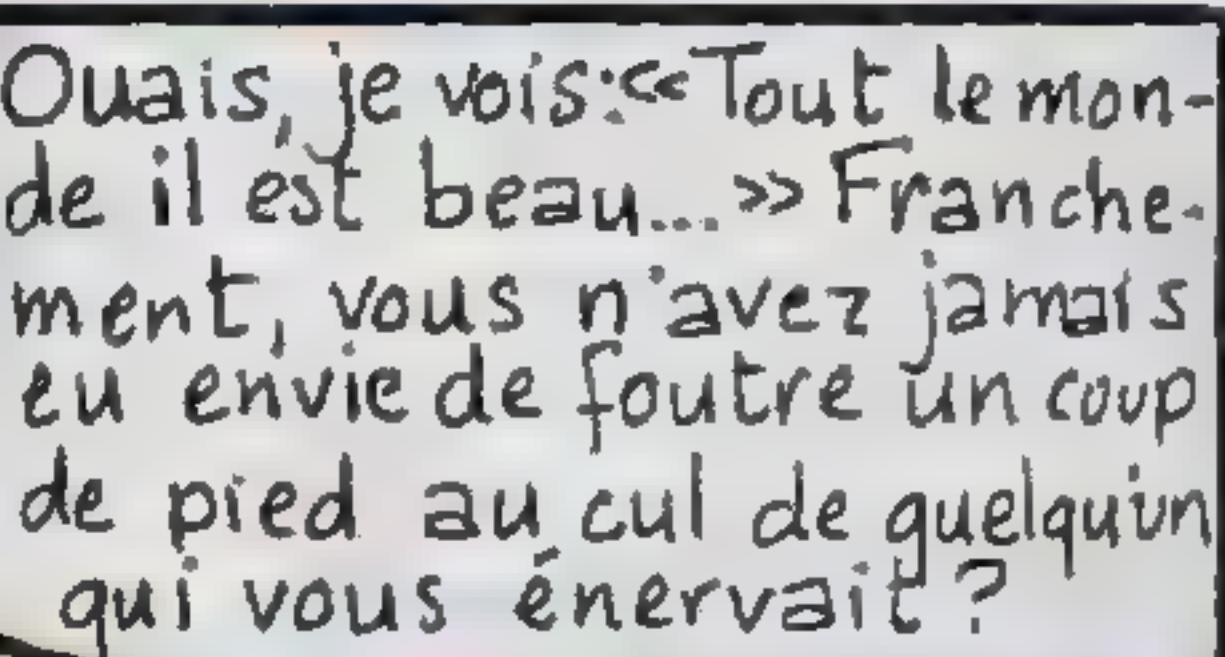 Ouais, je vois:«Tout le mon-
de il est beau...» Franche-
ment, vous n'avez jamais
eu envie de foutre un coup
de pied au cul de quelqu'un
qui vous énervait ?